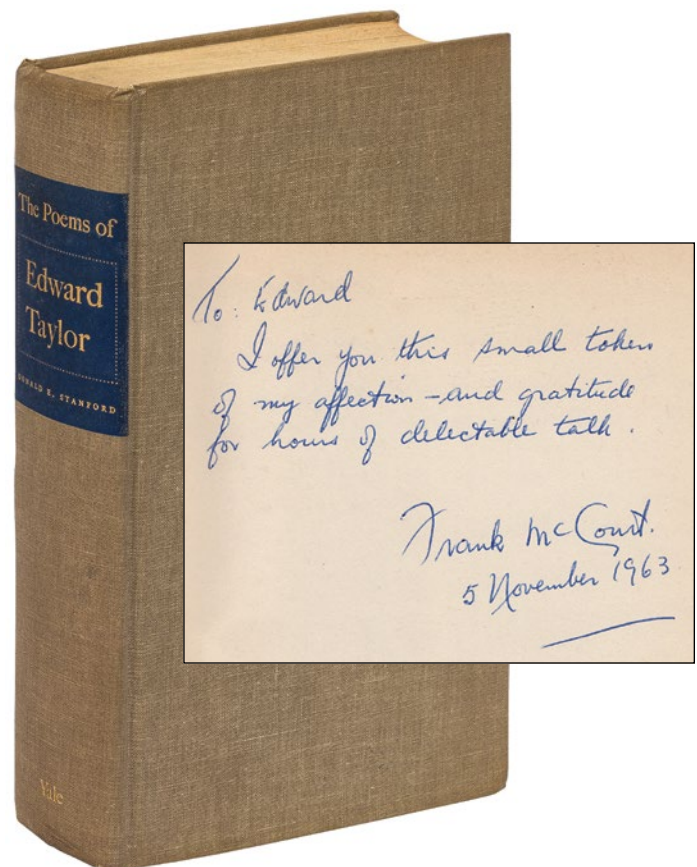 The Poems of
Edward
Taylor
DONALD E. STANFORD
Yale
To: Edward
I offer you this small token
of my affection – and gratitude
for hours of delectable talk.
Frank McCourt.
5 November 1963